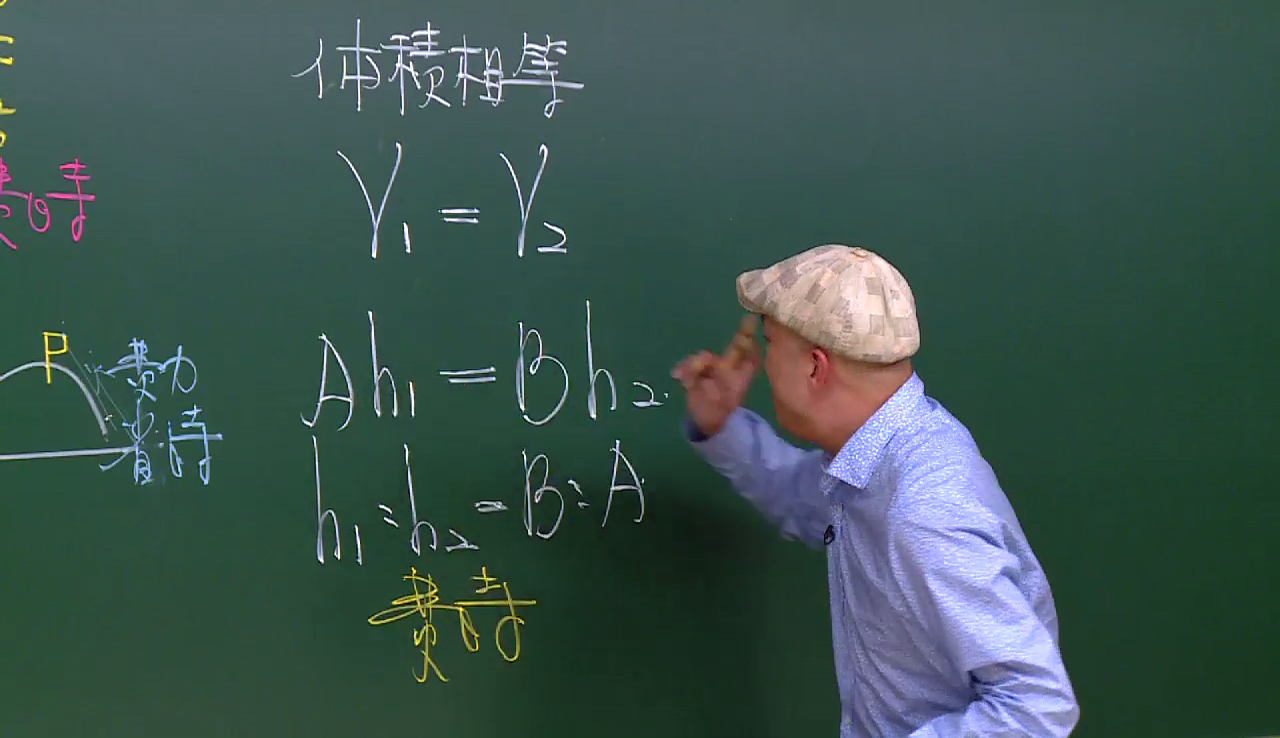 体積相等
V₁ = V₂
Ah₁ = Bh₂
h₁ : h₂ = B : A
費時
費時
P
費力
省時